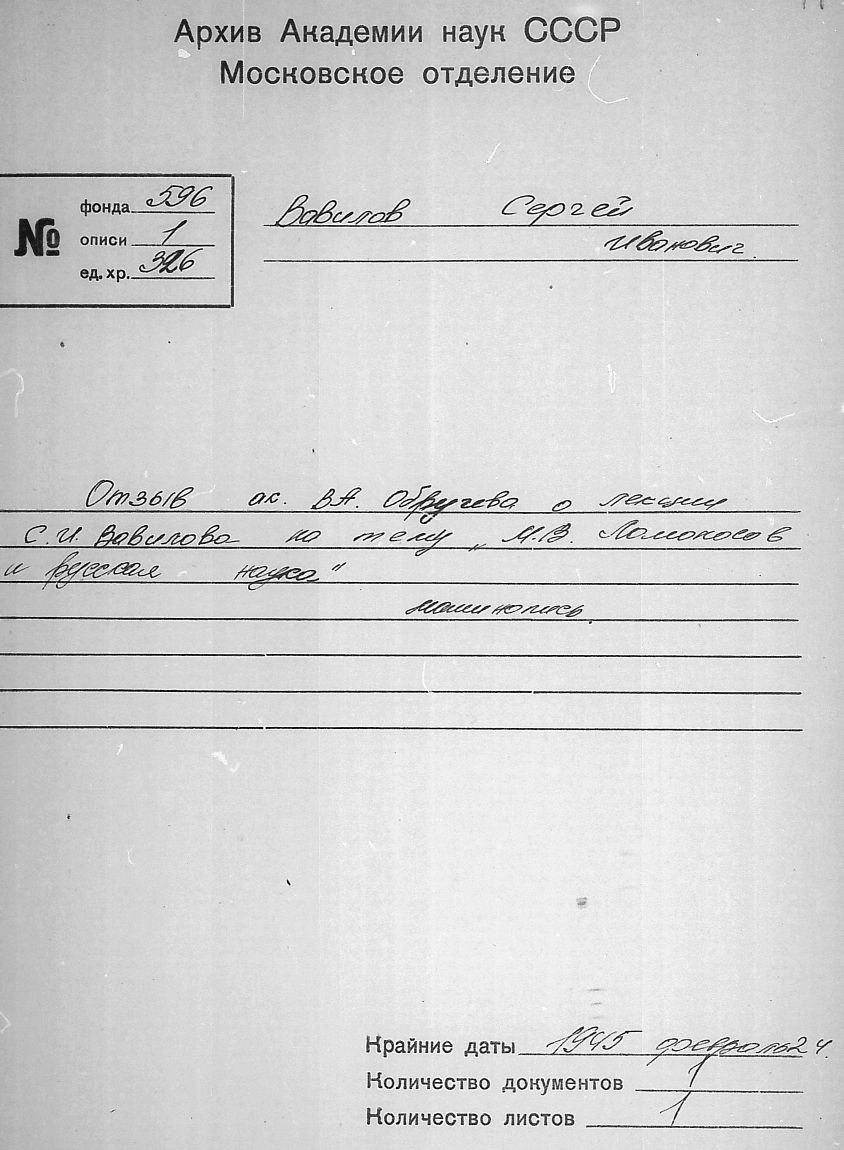 Архив Академии наук СССР
Московское отделение
№
фонда 596
описи 1
ед. хр. 326
Вавилов Сергей
Иванович.
Отзыв ак. В.А. Обручева о лекции
С.И. Вавилова на тему „М.В. Ломоносов
и русская наука"
машинопись.
Крайние даты 1945 февраль 24.
Количество документов 1
Количество листов 1